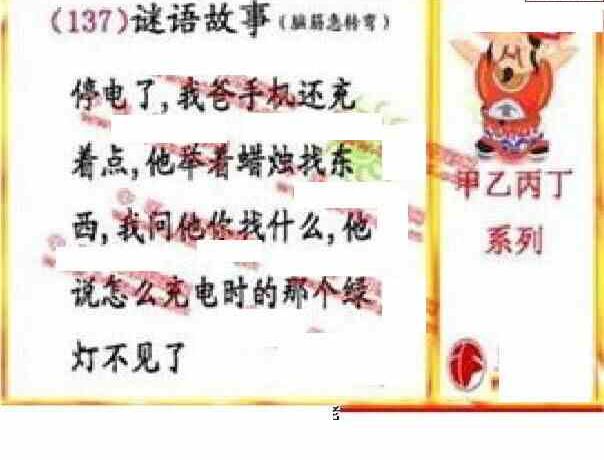 (137)谜语故事(脑筋急转弯)
停电了,我爸手机还充
着点,他举着蜡烛找东
西,我问他你找什么,他
说怎么充电时的那个绿
灯不见了
甲乙丙丁
系列